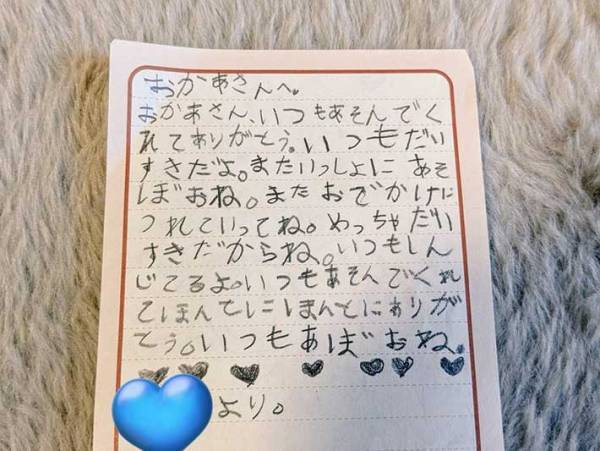 おかあさんへ。
おかあさん、いつもあそんでく
れてありがとう。いつもだい
すきだよ。またいっしょにあそ
ぼおね。またおでかけに
つれていってね。めっちゃだい
すきだからね。いつもしん
じてるよ。いつもあそんでくれ
てほんとにほんとにありが
とう。いつもあぼおね。
より。